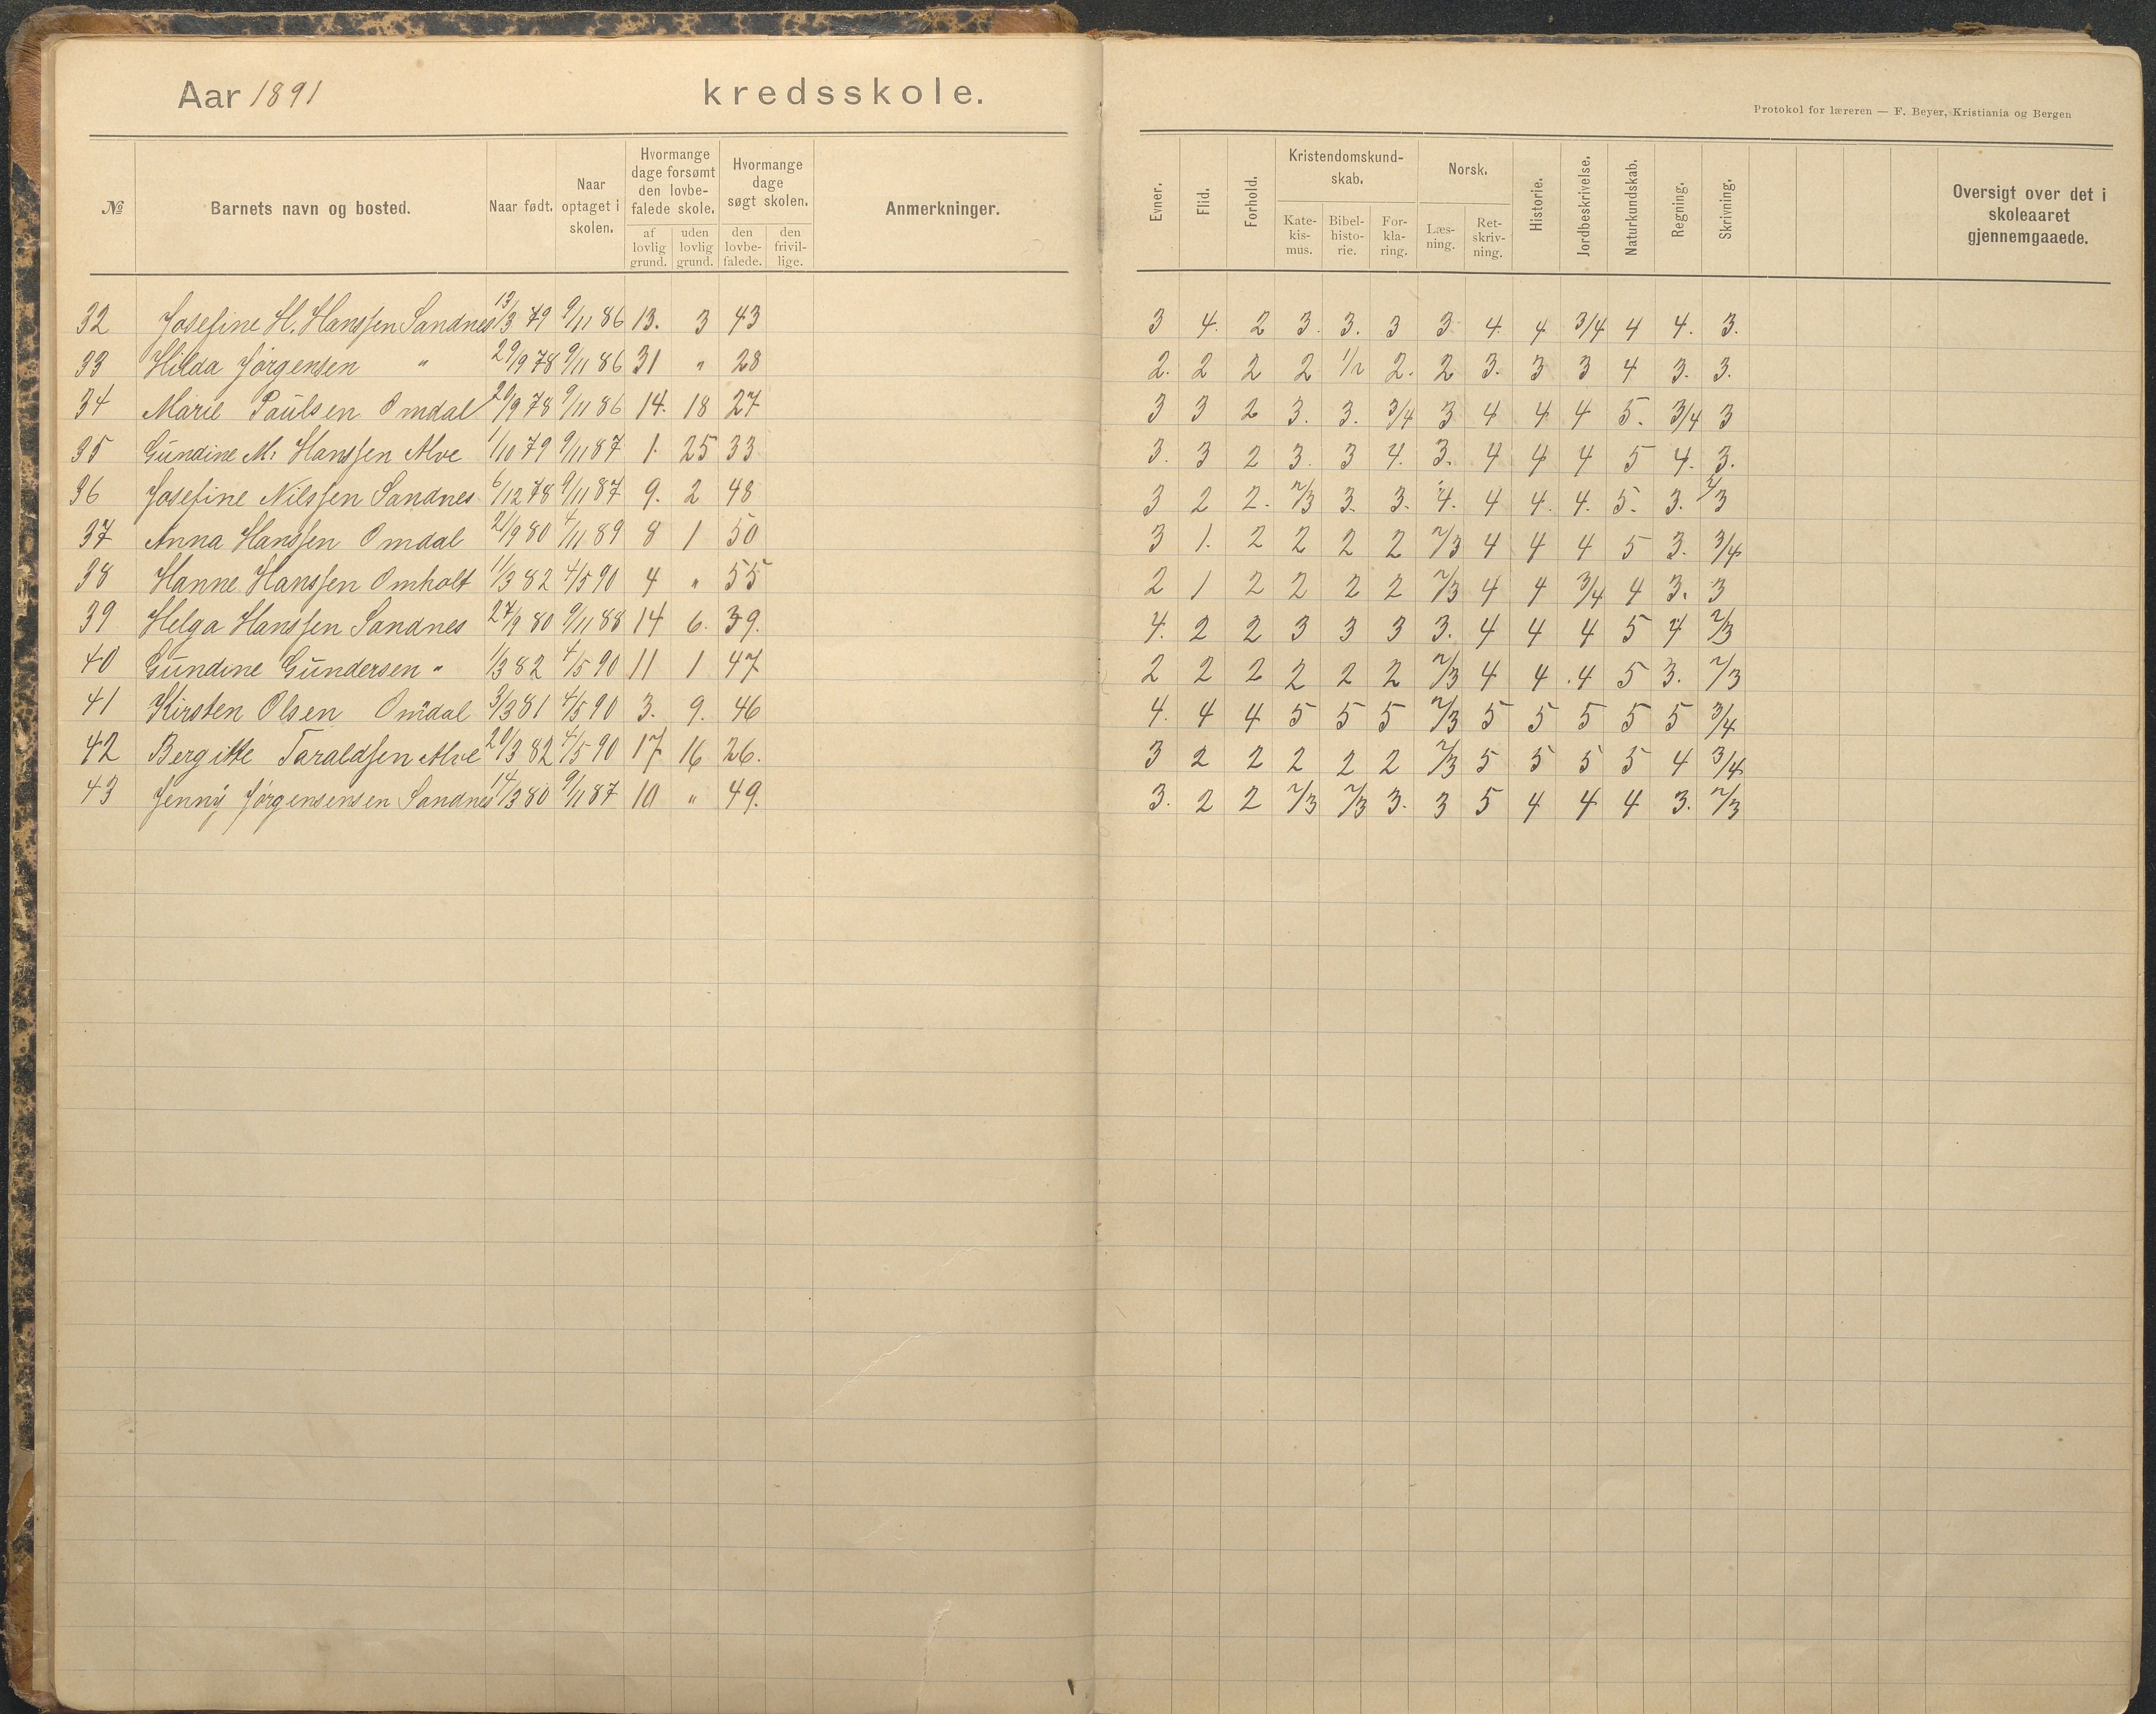 Aar 1891 kredsskole.
Protokol for læreren — F. Beyer, Kristiania og Bergen
№ Barnets navn og bosted. Naar født. Naar optaget i skolen. Hvormange dage forsømt den lovbefalede skole. af lovlig grund. uden lovlig grund. Hvormange dage søgt skolen. den lovbefalede. den frivillige. Anmerkninger. Evner. Flid. Forhold. Kristendomskundskab. Katekismus. Bibelhistorie. Forklaring. Norsk. Læsning. Retskrivning. Historie. Jordbeskrivelse. Naturkundskab. Regning. Skrivning. Oversigt over det i skoleaaret gjennemgaaede.
32 Josefine H. Hanssen Sandnes 13/3 79 9/11 86 13. 3 43 3 4. 2 3. 3. 3 3 4. 4 3/4 4 4. 3.
33 Hilda Jørgensen " 29/9 78 9/11 86 31 " 28 2. 2 2 2 1/2 2. 2 3. 3 3 4 3. 3.
34 Marie Paulsen Omdal 20/9 78 9/11 86 14. 18 27 3 3 2 3. 3. 3/4 3 4 4 4 5. 3/4 3
35 Gundine M. Hanssen Alve 1/10 79 9/11 87 1. 25 33 3. 3 2 3. 3 4. 3. 4 4 4 5 4. 3.
36 Josefine Nilssen Sandnes 6/12 78 9/11 87 9. 2 48 3 2 2. 2/3 3. 3. 4. 4 4. 4. 5. 3. 2/3
37 Anna Hanssen Omdal 21/9 80 4/11 89 8 1 50 3 1. 2 2 2 2 2/3 4 4 4 5 3. 3/4
38 Hanne Hanssen Omholt 11/3 82 4/5 90 4 " 55 2 1 2 2 2 2 2/3 4 4 3/4 4 3. 3
39 Helga Hanssen Sandnes 27/9 80 9/11 88 14 6. 39. 4. 2 2 3 3 3 3. 4 4 4 5 4 2/3
40 Gundine Gundersen " 1/3 82 4/5 90 11 1 47 2 2 2 2 2 2 2/3 4 4 .4 5 3. 2/3
41 Kirsten Olsen Omdal 3/3 81 4/5 90 3. 9. 46 4. 4 4 5 5 5 2/3 5 5 5 5 5 3/4
42 Bergitte Taraldsen Alve 20/3 82 4/5 90 17 16 26. 3 2 2 2 2 2 2/3 5 5 5 5 4 3/4
43 Jenny Jørgensensen Sandnes 14/3 80 9/11 87 10 " 49. 3. 2 2 2/3 2/3 3. 3 5 4 4 4 3. 2/3